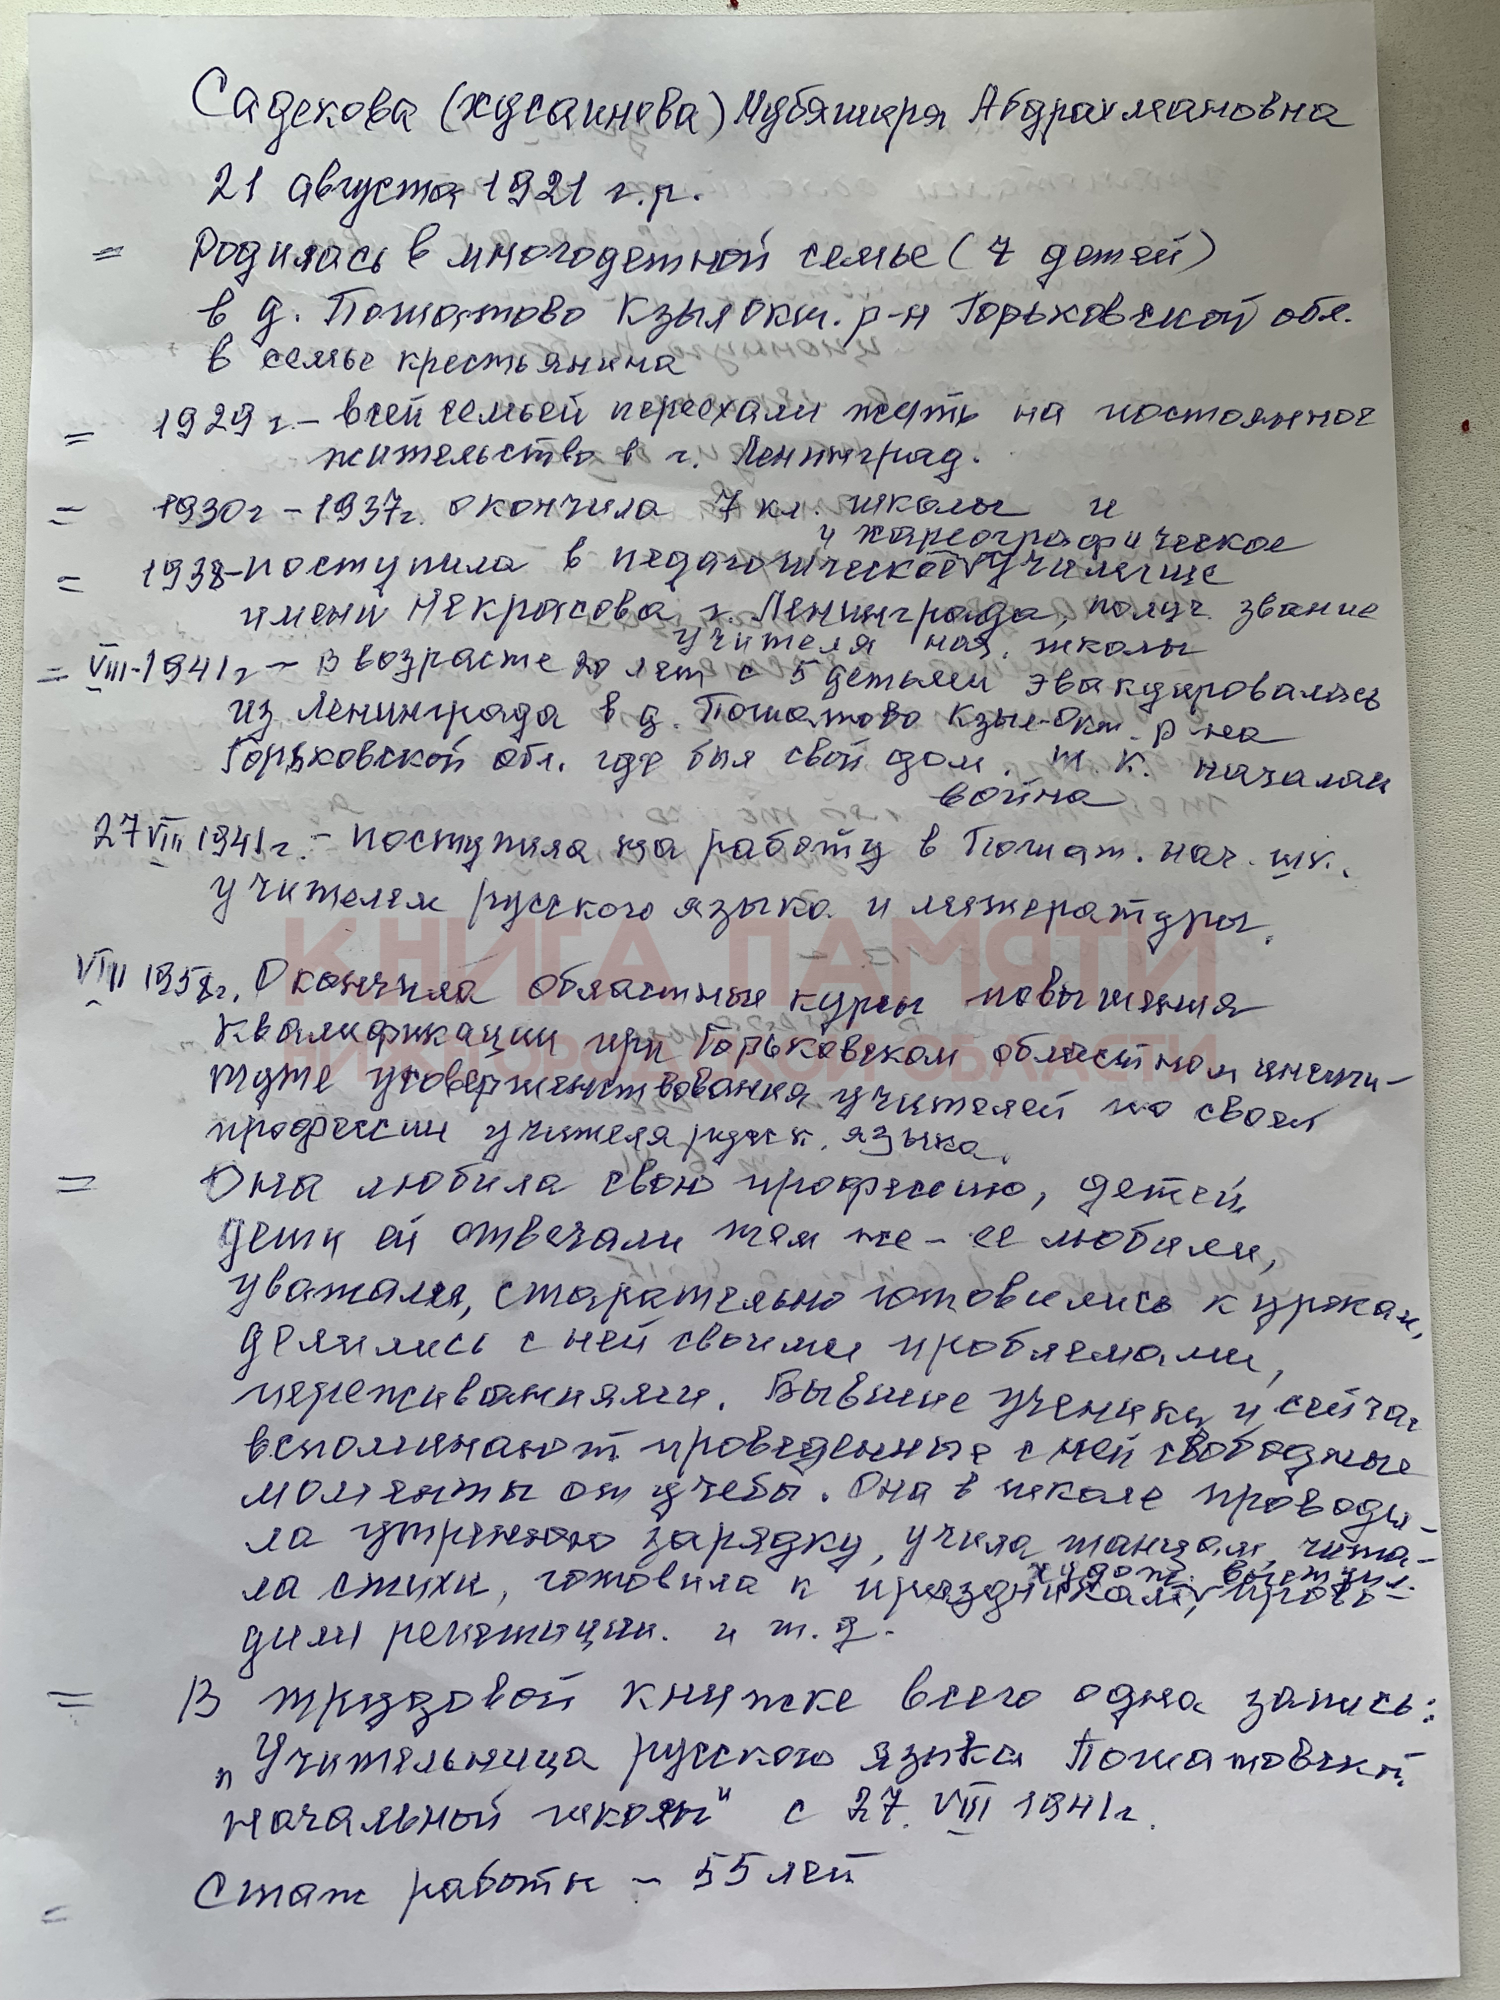 Садекова (Хусаинова) Мубяшаря Абдрахмановна
21 августа 1921 г.р.
= Родилась в многодетной семье (7 детей)
в д. Пошатово Кзыл Окт. р-н Горьковской обл.
в семье крестьянина
= 1929 г. – всей семьей переехали жить на постоянное
жительство в г. Ленинград.
= 1930 г – 1937 г. окончила 7 кл. школы и
и хореографическое
= 1938 – поступила в педагогическое v училище
имени Некрасова г. Ленинграда, получ. звание
учителя нач. школы
= VIII - 1941 г – В возрасте 20 лет с 5 детьми эвакуировалась
из Ленинграда в д. Пошатово Кзыл-Окт. р-на
Горьковской обл. где был свой дом, т.к. началаь
война
27 VIII 1941 г. – поступила на работу в Пошат. нач. шк.
учителем русского языка и литературы.
VIII 1958 г. Окончила областные курсы повышения
квалификации при Горьковском областном инсти-
туте усовершенствования учителей по своей
профессии учителя русск. языка.
= Она любила свою профессию, детей,
дети ей отвечали тем же – ее любили,
уважали, старательно готовились к урокам,
делились с ней своими проблемами,
переживаниями. Бывшие ученики и сейчас
вспоминают проведенные с ней свободные
моменты от учебы. Она в школе проводи-
ла утреннюю зарядку, учила танцам, чита-
худож. выступл.
ла стихи, готовила к праздникам v, прово-
дили репетиции. и т.д.
= В трудовой книжке всего одна запись:
„Учительница русского языка Пошатовской
начальной школы" с 27. VIII 1941 г.
= Стаж работы – 55 лет
КНИГА ПАМЯТИ
НИЖЕГОРОДСКОЙ ОБЛАСТИ